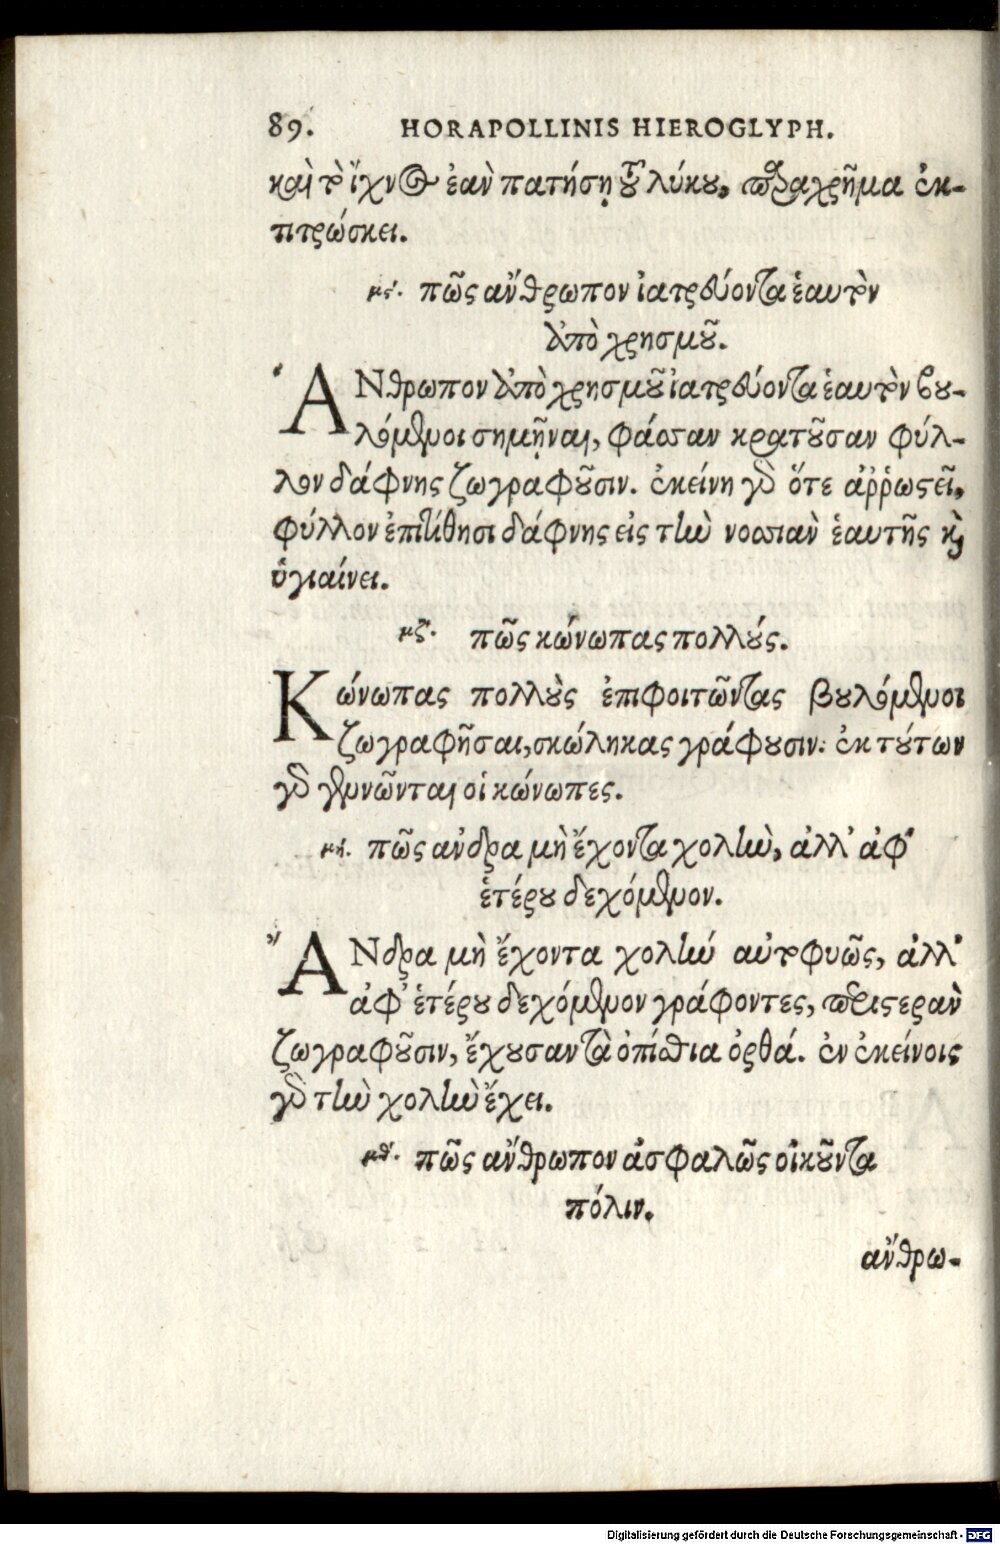 89. HORAPOLLINIS HIEROGLYPH.
καὶ τὸ ἴχνος ἐὰν πατήσῃ τοῦ λύκου, παραχρῆμα ἐκ-
τιτρώσκει.
μϛ΄. πῶς ἄνθρωπον ἰατρεύοντα ἑαυτὸν
ἀπὸ χρησμοῦ.
ἌΝθρωπον ἀπὸ χρησμοῦ ἰατρεύοντα ἑαυτὸν βου-
λόμενοι σημῆναι, φάσσαν κρατοῦσαν φύλ-
λον δάφνης ζωγραφοῦσιν. ἐκείνη γὰρ ὅτε ἀῤῥωστεῖ,
φύλλον ἐπιτίθησι δάφνης εἰς τὴν νοσσιὰν ἑαυτῆς καὶ
ὑγιαίνει.
μζ΄. πῶς κώνωπας πολλούς.
Κώνωπας πολλοὺς ἐπιφοιτῶντας βουλόμενοι
ζωγραφῆσαι, σκώληκας γράφουσιν. ἐκ τούτων
γὰρ γεννῶνται οἱ κώνωπες.
μη΄. πῶς ἄνδρα μὴ ἔχοντα χολὴν, ἀλλ' ἀφ'
ἑτέρου δεχόμενον.
ἌΝδρα μὴ ἔχοντα χολὴν αὐτοφυῶς, ἀλλ'
ἀφ' ἑτέρου δεχόμενον γράφοντες, περιστερὰν
ζωγραφοῦσιν, ἔχουσαν τὰ ὀπίσθια ὀρθά. ἐν ἐκείνοις
γὰρ τὴν χολὴν ἔχει.
μθ΄. πῶς ἄνθρωπον ἀσφαλῶς οἰκοῦντα
πόλιν.
ἄνθρω-
Digitalisierung gefördert durch die Deutsche Forschungsgemeinschaft - DFG